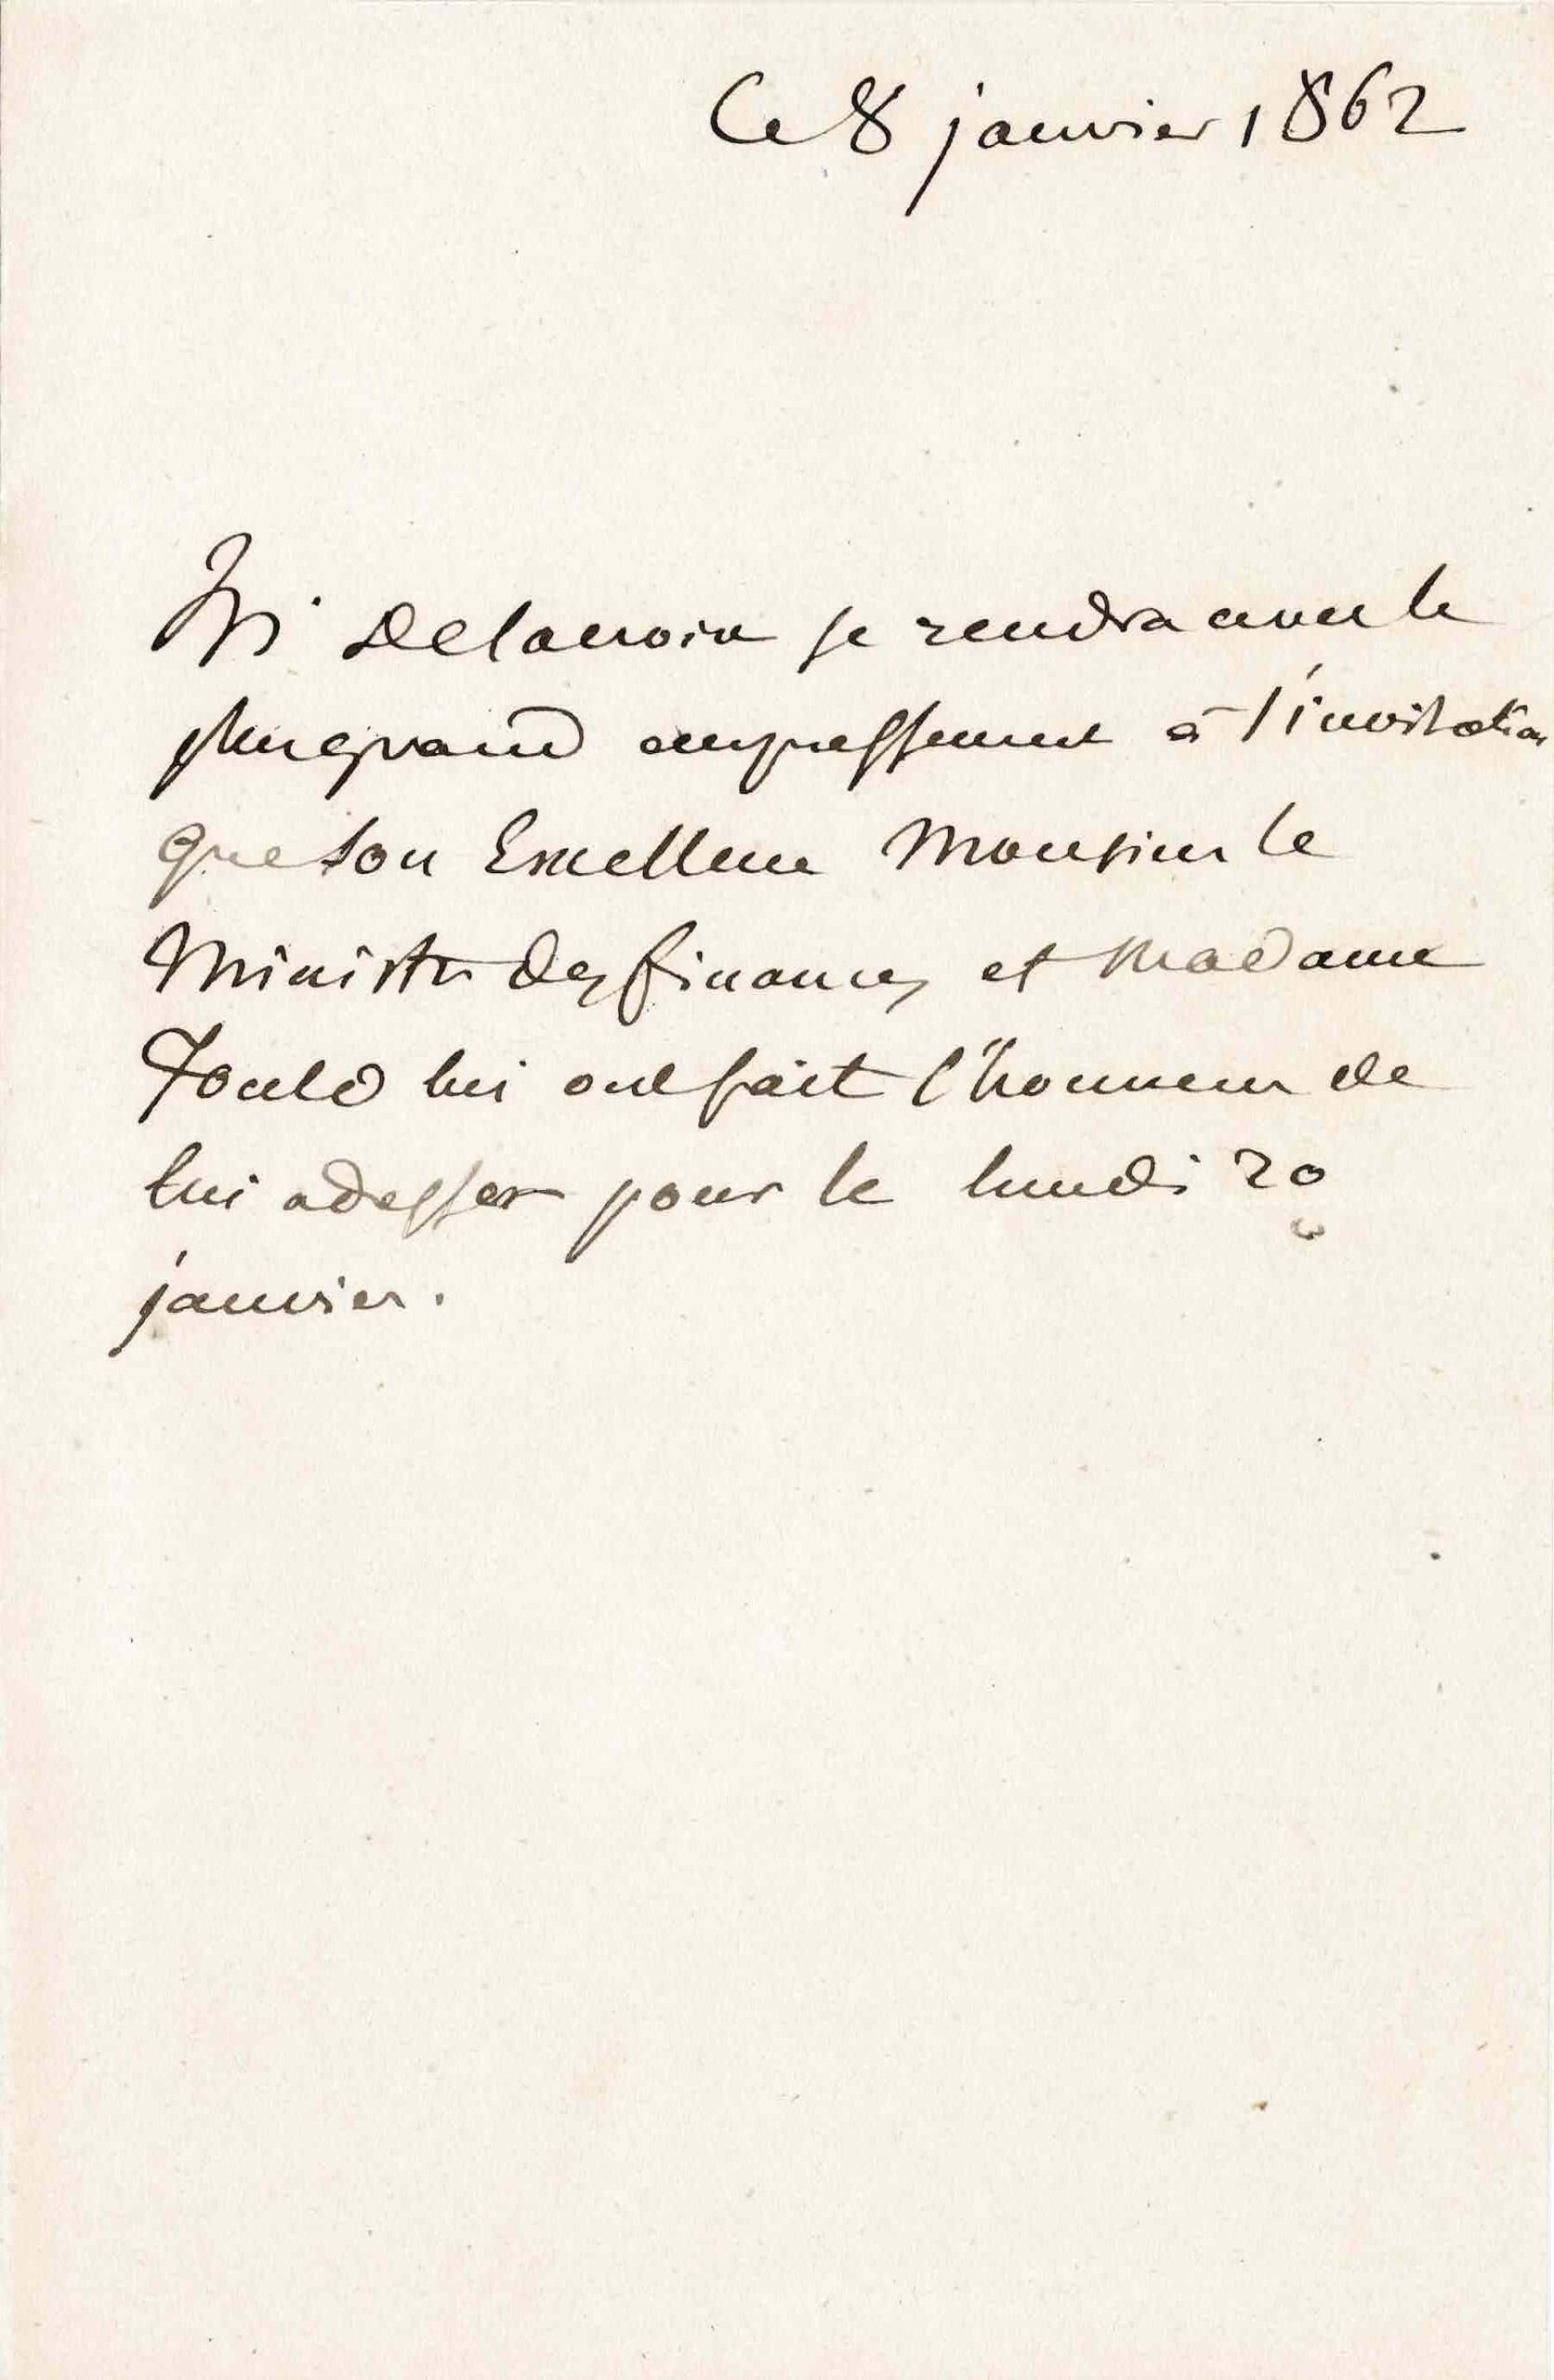 Ce 8 janvier 1862
Mr Delacroix se rendra avec le
plus grand empressement à l'invitation
que son Excellence Monsieur le
Ministre des finances et Madame
Fould lui ont fait l'honneur de
lui adresser pour le lundi 20
janvier.